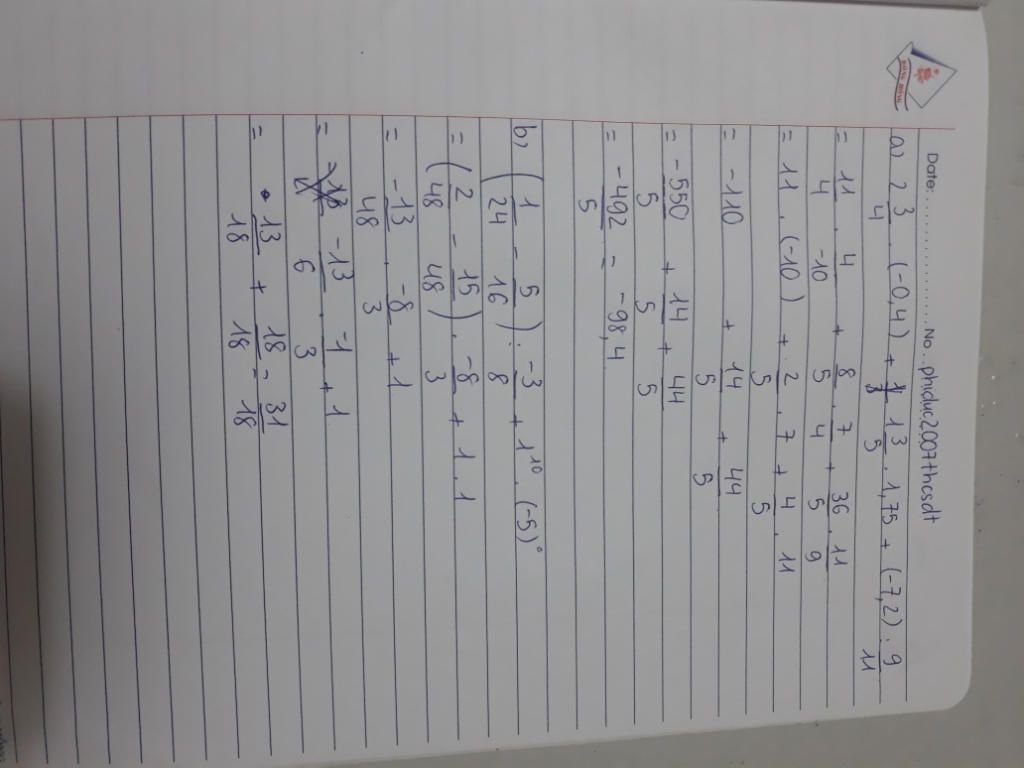 Date:............... No..phiduc2007thcsdt
a) 2 3/4 . (-0,4) + 1 3/5 . 1,75 + (-7,2) : 9/11
= 11/4 . 4/-10 + 8/5 . 7/4 + 36/5 . 11/9
= 11 . (-10) + 2/5 . 7 + 4/5 . 11
= -110 + 14/5 + 44/5
= -550/5 + 14/5 + 44/5
= -492/5 = -98,4
b) (1/24 - 5/16) : -3/8 + 1^10 . (-5)^0
= (2/48 - 15/48) . -8/3 + 1 . 1
= -13/48 . -8/3 + 1
= -13/6 . -1/3 + 1
= 13/18 + 18/18 = 31/18